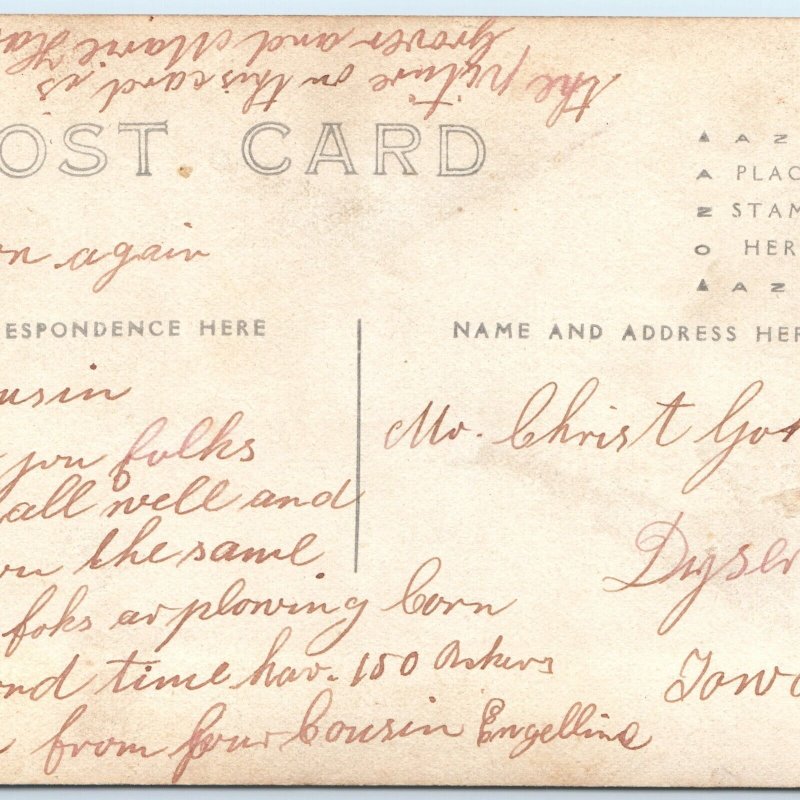 the picture on this card is
Grover and Marie Ha
OST CARD
A Z
A PLAC
Z STAM
O HER
A Z
on again
ESPONDENCE HERE
NAME AND ADDRESS HER
usin
you folks
all well and
the same
foks ar plowing Corn
ond time hav. 150 Ackers
from your Cousin Engelline
Mr. Christ Go
Dyser
Iowa